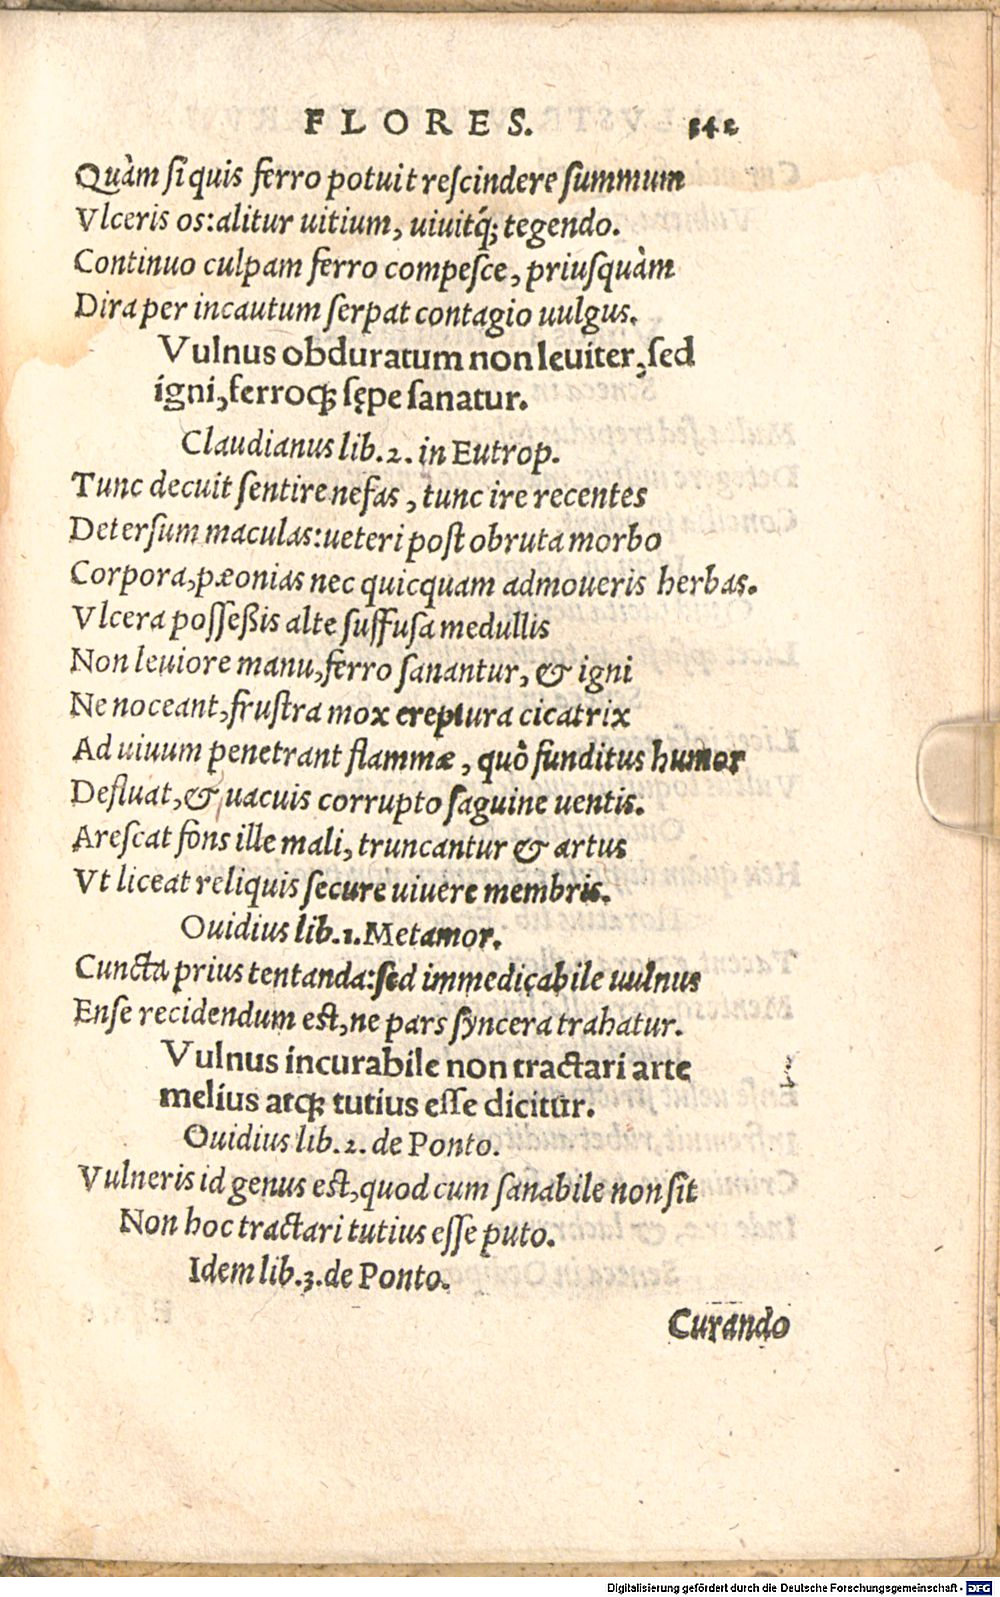 FLORES. 342
Quàm si quis ferro potuit rescindere summum
Vlceris os: alitur uitium, uiuitq́; tegendo.
Continuo culpam ferro compesce, priusquàm
Dira per incautum serpat contagio uulgus.
Vulnus obduratum non leuiter, sed
igni, ferroq; sępe sanatur.
Claudianus lib. 2. in Eutrop.
Tunc decuit sentire nefas, tunc ire recentes
Detersum maculas: ueteri post obruta morbo
Corpora, pæonias nec quicquam admoueris herbas.
Vlcera posseßis alte suffusa medullis
Non leuiore manu, ferro sanantur, & igni
Ne noceant, frustra mox ereptura cicatrix
Ad uiuum penetrant flammæ, quò funditus humor
Defluat, & uacuis corrupto saguine uentis.
Arescat fons ille mali, truncantur & artus
Vt liceat reliquis secure uiuere membris.
Ouidius lib. 1. Metamor.
Cuncta prius tentanda: sed immedicabile uulnus
Ense recidendum est, ne pars syncera trahatur.
Vulnus incurabile non tractari arte
melius atq; tutius esse dicitur.
Ouidius lib. 2. de Ponto.
Vulneris id genus est, quod cum sanabile non sit
Non hoc tractari tutius esse puto.
Idem lib. 3. de Ponto.
Curando
Digitalisierung gefördert durch die Deutsche Forschungsgemeinschaft - DFG